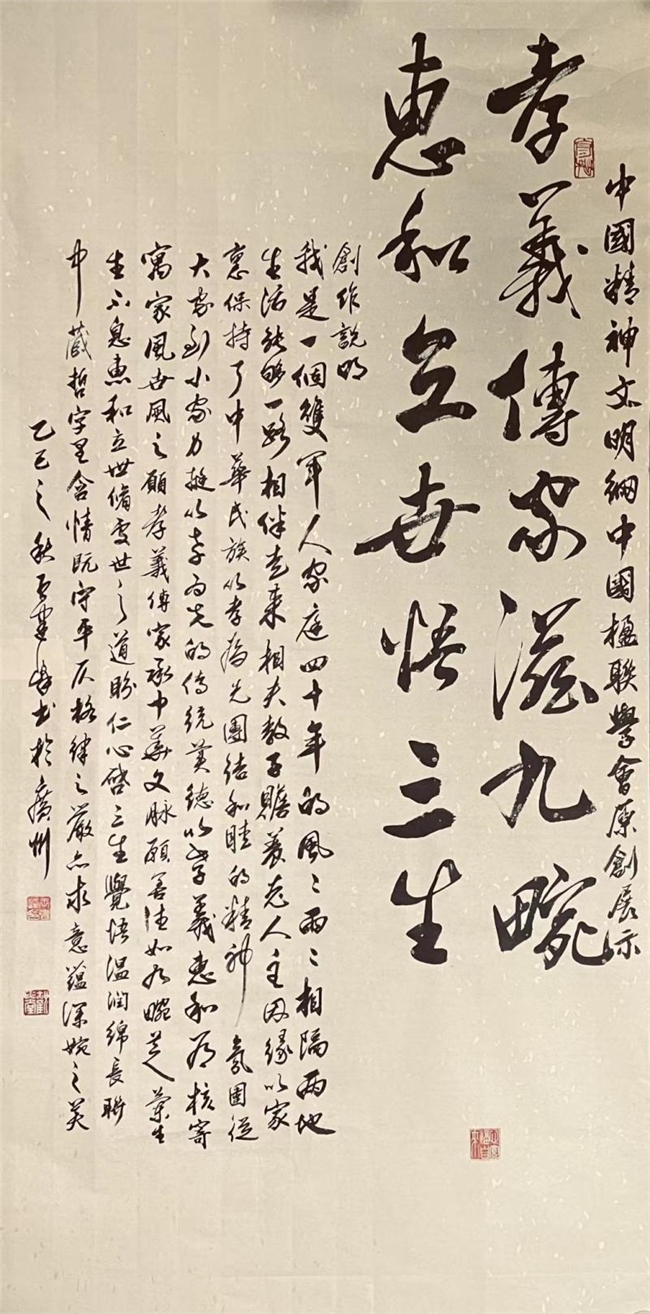 中國精神文明網中國楹聯學會原創展示
孝義傳家滋九畹
惠和立世悟三生
創作說明
我是一個雙軍人家庭四十年的風〻雨〻相隔兩地
生活能夠一路相伴走来相夫教子贍養老人主因緣以家
裏保持了中華民族以孝為先團结和睦的精神氛圍從
大家到小家力挺以孝为先的傳統美德以孝義惠和為核寄
寓家風世風之願孝義傳家承中華文脉願善德如九畹芝蘭生
生不息惠和立世脩處世之道盼仁心啓三生覺悟温润綿長聯
中藏哲字里含情既守平仄格律之嚴亦求意蕴深婉之美
乙巳之秋 書於廣州